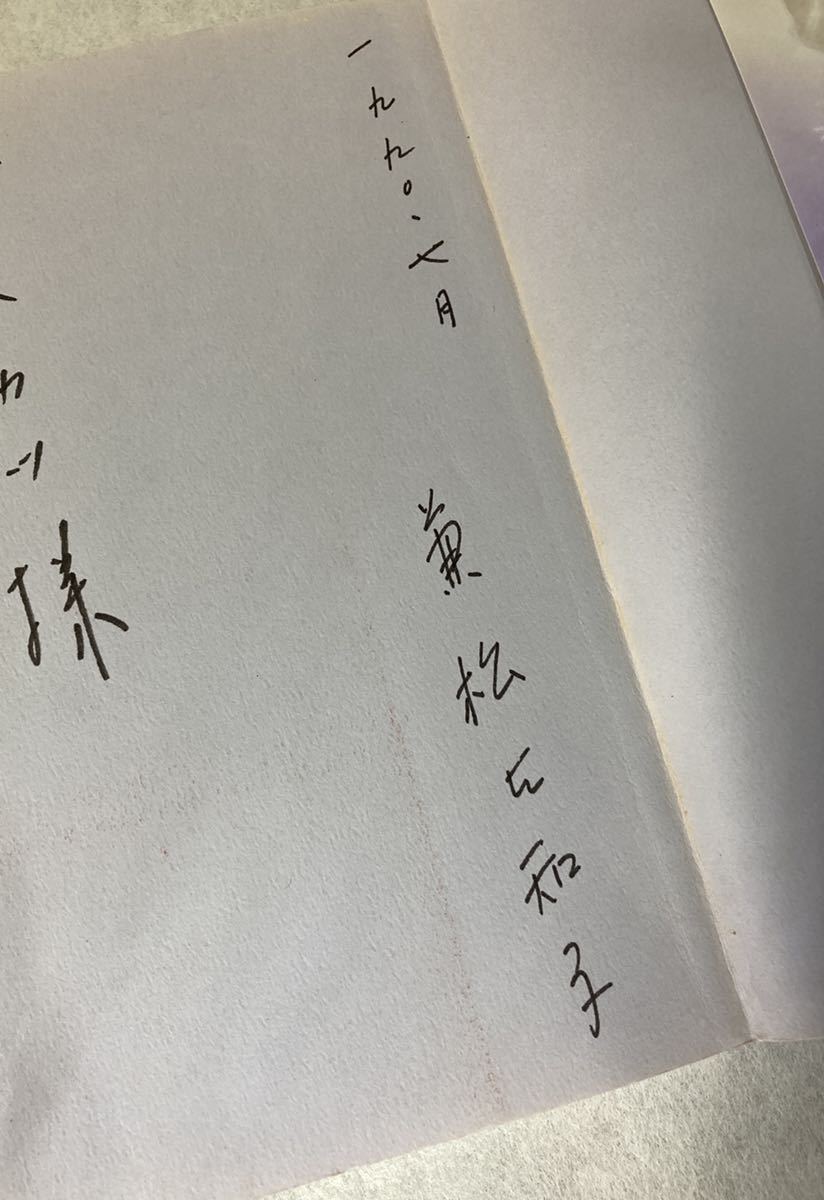 一九九〇・七月　兼松左知子
様